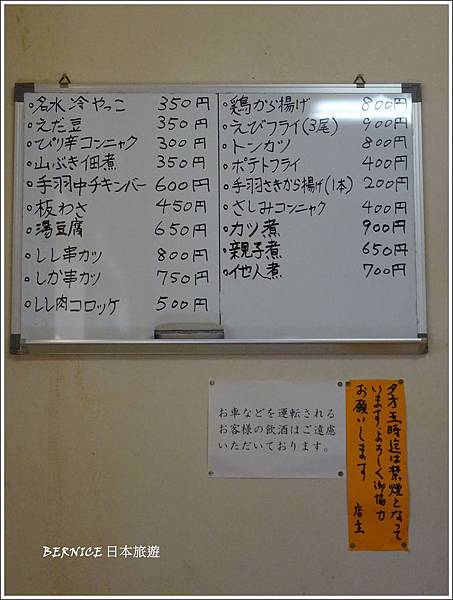 ○名水冷やっこ 350円
○えだ豆 350円
○ぴり辛コンニャク 300円
○山ぶき佃煮 350円
○手羽中チキンバー 600円
○板わさ 450円
○湯豆腐 650円
○しし串カツ 800円
○しか串カツ 750円
○しし肉コロッケ 500円
○鶏から揚げ 800円
○えびフライ(3尾) 900円
○トンカツ 800円
○ポテトフライ 400円
○手羽さきから揚げ(1本) 200円
○さしみコンニャク 400円
○カツ煮 900円
○親子煮 650円
○他人煮 700円
お車などを運転される
お客様の飲酒はご遠慮
いただいております。
夕方五時迄は禁煙となって
いますよろしく御協力
お願いします
店主
BERNICE 日本旅遊